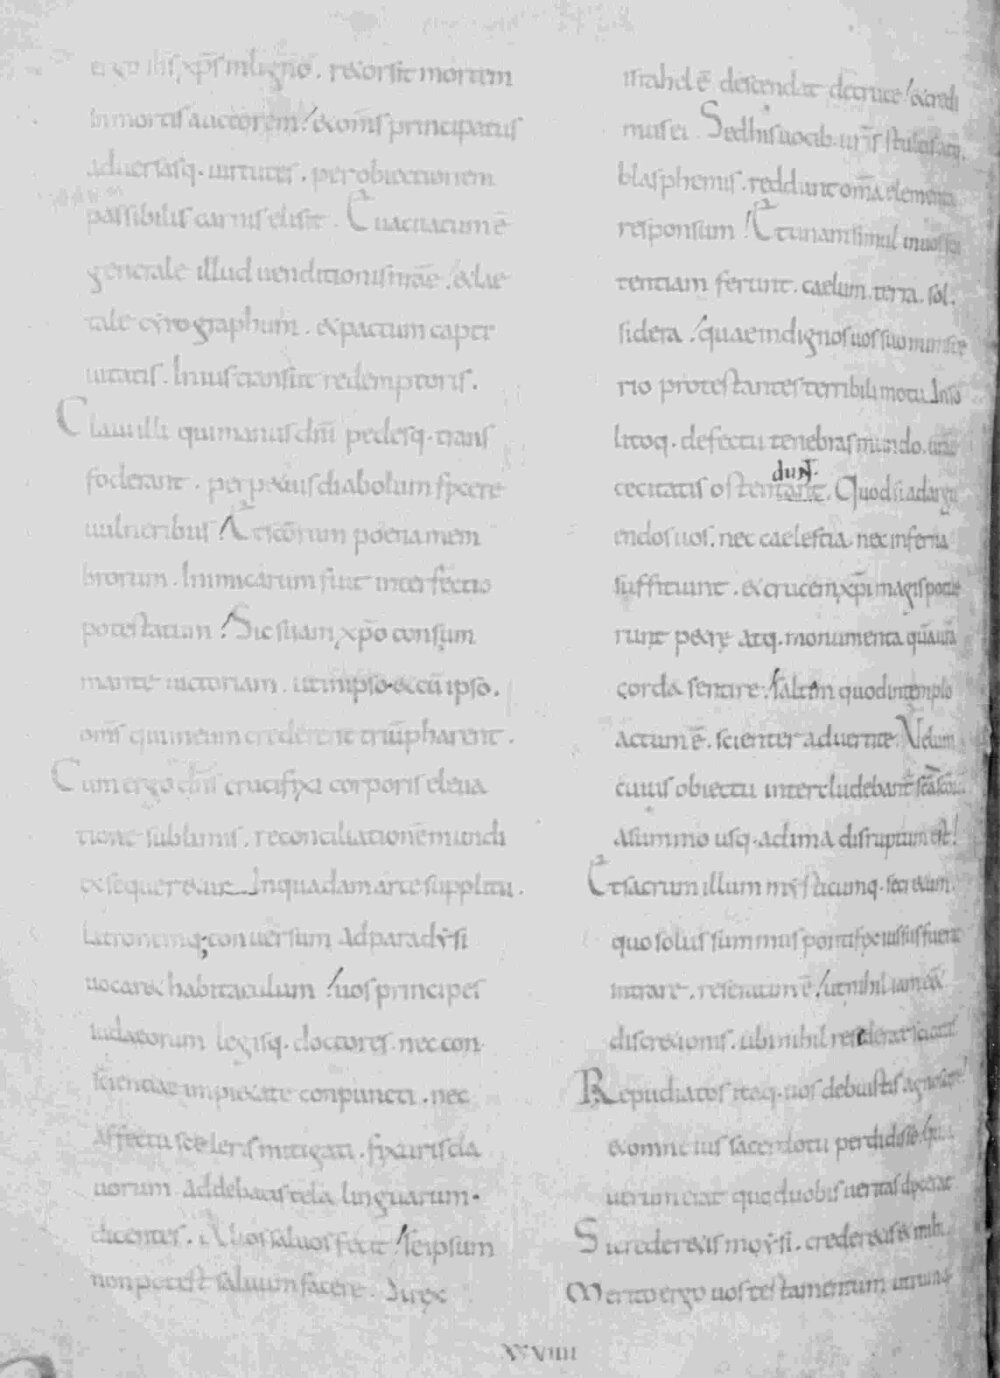 ergo ihs xp̄s in ligno. retorsit mortem
in mortis auctorem! & om̄s principatus
aduersasq. uirtutes. per obiectionem
passibilis carnis elisit. Euacuatum ē
generale illud uenditionis nr̄ae. & lae
tale cyrographum. & pactum capti
uitatis. In ius transiit redemptoris.
Claui illi qui manus dn̄i pedesq. trans
foderant. perpetuis diabolum fixere
uulneribus! Et sc̄orum poena mem
brorum. Inimicarum fuit interfectio
potestatum! Sic suam xp̄o consum
mante uictoriam. ut in ipso. & cū ipso.
om̄s qui in eum crederent triūpharent.
Cum ergo dn̄s crucifixi corporis eleua
tione sublimis. reconciliationē mundi
exsequeretur. In quadam arce supplicii.
Latronemq; conuersum ad paradysi
uocaret habitaculum! uos principes
iudaeorum legisq. doctores. nec con
scientiae impietate conpuncti. nec
affectu sceleris mitigati. fixuris cla
uorum addebatis tela linguarum.
dicentes. Alios saluos fecit! se ipsum
non potest saluum facere. Si rex
israhel ē descendat de cruce! & credi
mus ei. Sed his uocib. ur̄is stultis atq.
blasphemis. reddunt om̄a elementa
responsum! Et unam simul in uos sen
tentiam ferunt. caelum. terra. sol.
sidera! quae indignos uos suo ministe
rio protestantes terribili motu. Inso
litoq. defectu tenebras mundo. ur̄ae
dunt.
cecitatis ostentarit. Quod si ad argu
endos uos. nec caelestia. nec inferna
suffitiunt. & crucem xp̄i magis potue
runt petrę atq. monumenta quā ur̄a
corda sentire! saltim quod in templo
actum ē. scienter aduertite. Velum
cuius obiectu intercludebant̄ sc̄a sc̄o
a summo usq. ad ima disruptum est!
Et sacrum illum mysticumq. secretum.
quo solus summus pontifex iussus fuerat
intrare. reseratum ē! ut nihil iam eēt
discretionis. ubi nihil resederat
Repudiatos itaq. uos debuistis agnoscere!
& omne ius sacerdotii perdidisse.
uerum erat quod uobis ueritas dixerat
Si crederetis moysi. crederetis & mihi.
Merito ergo uos testamentum utrumq.
XXVIIII